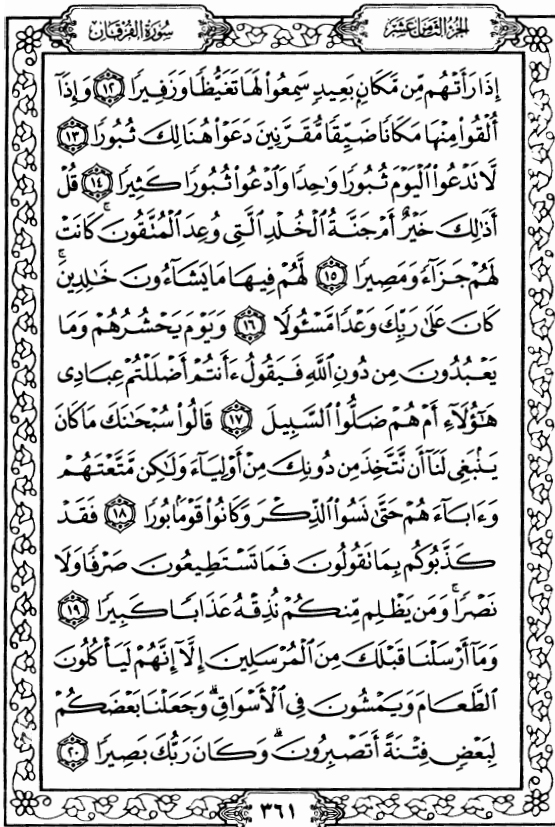 الجزء الثامن عشر
سورة الفرقان
إِذَا رَأَتْهُم مِّن مَّكَانٍۭ بَعِيدٍ سَمِعُوا۟ لَهَا تَغَيُّظًا وَزَفِيرًا ١٢ وَإِذَآ
أُلْقُوا۟ مِنْهَا مَكَانًا ضَيِّقًا مُّقَرَّنِينَ دَعَوْا۟ هُنَالِكَ ثُبُورًا ١٣
لَّا تَدْعُوا۟ ٱلْيَوْمَ ثُبُورًا وَٰحِدًا وَٱدْعُوا۟ ثُبُورًا كَثِيرًا ١٤ قُلْ
أَذَٰلِكَ خَيْرٌ أَمْ جَنَّةُ ٱلْخُلْدِ ٱلَّتِى وُعِدَ ٱلْمُتَّقُونَ ۚ كَانَتْ
لَهُمْ جَزَآءً وَمَصِيرًا ١٥ لَّهُمْ فِيهَا مَا يَشَآءُونَ خَٰلِدِينَ ۚ
كَانَ عَلَىٰ رَبِّكَ وَعْدًا مَّسْـُٔولًا ١٦ وَيَوْمَ يَحْشُرُهُمْ وَمَا
يَعْبُدُونَ مِن دُونِ ٱللَّهِ فَيَقُولُ ءَأَنتُمْ أَضْلَلْتُمْ عِبَادِى
هَٰٓؤُلَآءِ أَمْ هُمْ ضَلُّوا۟ ٱلسَّبِيلَ ١٧ قَالُوا۟ سُبْحَٰنَكَ مَا كَانَ
يَنۢبَغِى لَنَآ أَن نَّتَّخِذَ مِن دُونِكَ مِنْ أَوْلِيَآءَ وَلَٰكِن مَّتَّعْتَهُمْ
وَءَابَآءَهُمْ حَتَّىٰ نَسُوا۟ ٱلذِّكْرَ وَكَانُوا۟ قَوْمًۢا بُورًا ١٨ فَقَدْ
كَذَّبُوكُم بِمَا تَقُولُونَ فَمَا تَسْتَطِيعُونَ صَرْفًا وَلَا
نَصْرًا ۚ وَمَن يَظْلِم مِّنكُمْ نُذِقْهُ عَذَابًا كَبِيرًا ١٩
وَمَآ أَرْسَلْنَا قَبْلَكَ مِنَ ٱلْمُرْسَلِينَ إِلَّآ إِنَّهُمْ لَيَأْكُلُونَ
ٱلطَّعَامَ وَيَمْشُونَ فِى ٱلْأَسْوَاقِ ۗ وَجَعَلْنَا بَعْضَكُمْ
لِبَعْضٍ فِتْنَةً أَتَصْبِرُونَ ۗ وَكَانَ رَبُّكَ بَصِيرًا ٢٠
٣٦١